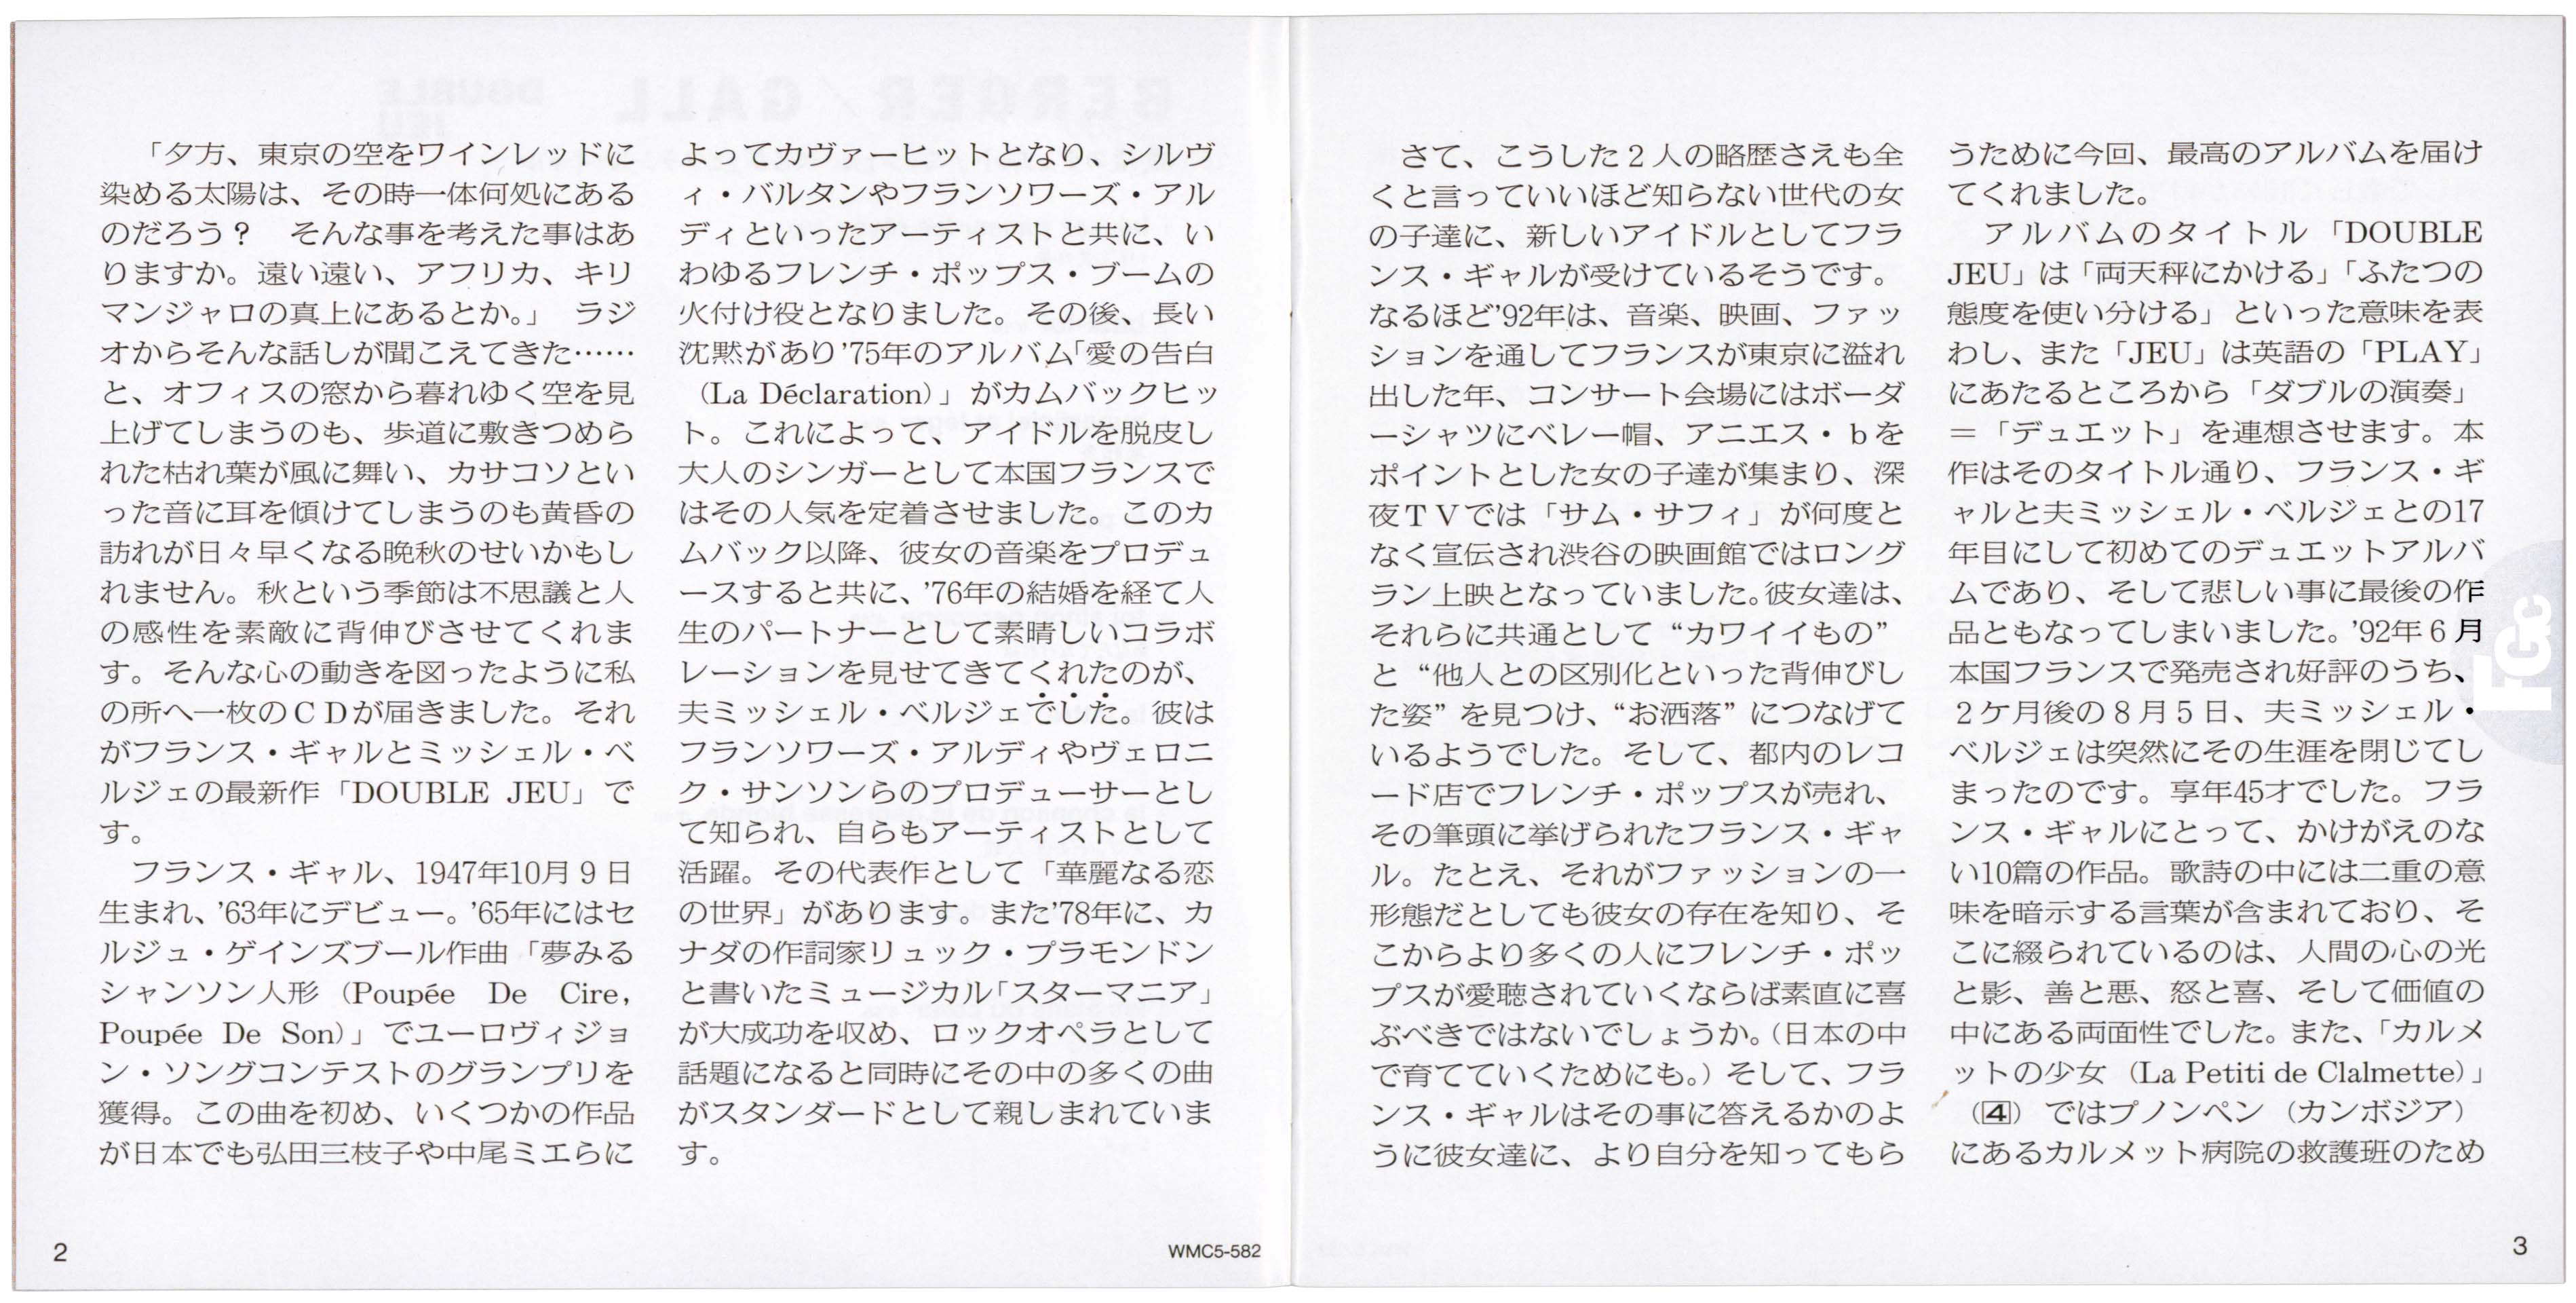 「夕方、東京の空をワインレッドに
染める太陽は、その時一体何処にある
のだろう？　そんな事を考えた事はあ
りますか。遠い遠い、アフリカ、キリ
マンジャロの真上にあるとか。」　ラジ
オからそんな話しが聞こえてきた……
と、オフィスの窓から暮れゆく空を見
上げてしまうのも、歩道に敷きつめら
れた枯れ葉が風に舞い、カサコソとい
った音に耳を傾けてしまうのも黄昏の
訪れが日々早くなる晩秋のせいかもし
れません。秋という季節は不思議と人
の感性を素敵に背伸びさせてくれま
す。そんな心の動きを図ったように私
の所へ一枚のＣＤが届きました。それ
がフランス・ギャルとミッシェル・ベ
ルジェの最新作「DOUBLE JEU」で
す。
　フランス・ギャル、1947年10月９日
生まれ、’63年にデビュー。’65年にはセ
ルジュ・ゲインズブール作曲「夢みる
シャンソン人形（Poupée De Cire,
Poupée De Son）」でユーロヴィジョ
ン・ソングコンテストのグランプリを
獲得。この曲を初め、いくつかの作品
が日本でも弘田三枝子や中尾ミエらに
よってカヴァーヒットとなり、シルヴ
ィ・バルタンやフランソワーズ・アル
ディといったアーティストと共に、い
わゆるフレンチ・ポップス・ブームの
火付け役となりました。その後、長い
沈黙があり’75年のアルバム「愛の告白
（La Déclaration）」がカムバックヒッ
ト。これによって、アイドルを脱皮し
大人のシンガーとして本国フランスで
はその人気を定着させました。このカ
ムバック以降、彼女の音楽をプロデュ
ースすると共に、’76年の結婚を経て人
生のパートナーとして素晴しいコラボ
レーションを見せてきてくれたのが、
夫ミッシェル・ベルジェでした。彼は
フランソワーズ・アルディやヴェロニ
ク・サンソンらのプロデューサーとし
て知られ、自らもアーティストとして
活躍。その代表作として「華麗なる恋
の世界」があります。また’78年に、カ
ナダの作詞家リュック・プラモンドン
と書いたミュージカル「スターマニア」
が大成功を収め、ロックオペラとして
話題になると同時にその中の多くの曲
がスタンダードとして親しまれていま
す。
2
WMC5-582
　さて、こうした２人の略歴さえも全
くと言っていいほど知らない世代の女
の子達に、新しいアイドルとしてフラ
ンス・ギャルが受けているそうです。
なるほど’92年は、音楽、映画、ファッ
ションを通してフランスが東京に溢れ
出した年、コンサート会場にはボーダ
ーシャツにベレー帽、アニエス・ｂを
ポイントとした女の子達が集まり、深
夜ＴＶでは「サム・サフィ」が何度と
なく宣伝され渋谷の映画館ではロング
ラン上映となっていました。彼女達は、
それらに共通として“カワイイもの”
と“他人との区別化といった背伸びし
た姿”を見つけ、“お洒落”につなげて
いるようでした。そして、都内のレコ
ード店でフレンチ・ポップスが売れ、
その筆頭に挙げられたフランス・ギャ
ル。たとえ、それがファッションの一
形態だとしても彼女の存在を知り、そ
こからより多くの人にフレンチ・ポッ
プスが愛聴されていくならば素直に喜
ぶべきではないでしょうか。（日本の中
で育てていくためにも。）そして、フラ
ンス・ギャルはその事に答えるかのよ
うに彼女達に、より自分を知ってもら
うために今回、最高のアルバムを届け
てくれました。
　アルバムのタイトル「DOUBLE
JEU」は「両天秤にかける」「ふたつの
態度を使い分ける」といった意味を表
わし、また「JEU」は英語の「PLAY」
にあたるところから「ダブルの演奏」
＝「デュエット」を連想させます。本
作はそのタイトル通り、フランス・ギ
ャルと夫ミッシェル・ベルジェとの17
年目にして初めてのデュエットアルバ
ムであり、そして悲しい事に最後の作
品ともなってしまいました。’92年６月
本国フランスで発売され好評のうち、
２ケ月後の８月５日、夫ミッシェル・
ベルジェは突然にその生涯を閉じてし
まったのです。享年45才でした。フラ
ンス・ギャルにとって、かけがえのな
い10篇の作品。歌詩の中には二重の意
味を暗示する言葉が含まれており、そ
こに綴られているのは、人間の心の光
と影、善と悪、怒と喜、そして価値の
中にある両面性でした。また、「カルメ
ットの少女（La Petiti de Clalmette）」
（4）ではプノンペン（カンボジア）
にあるカルメット病院の救護班のため
3